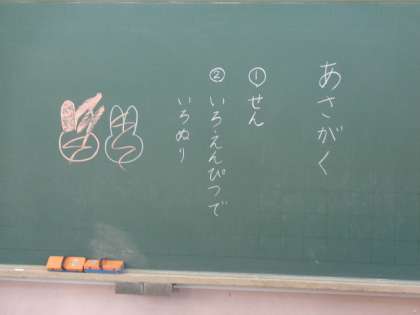 あさがく
①せん
②いろえんぴつで
いろぬり